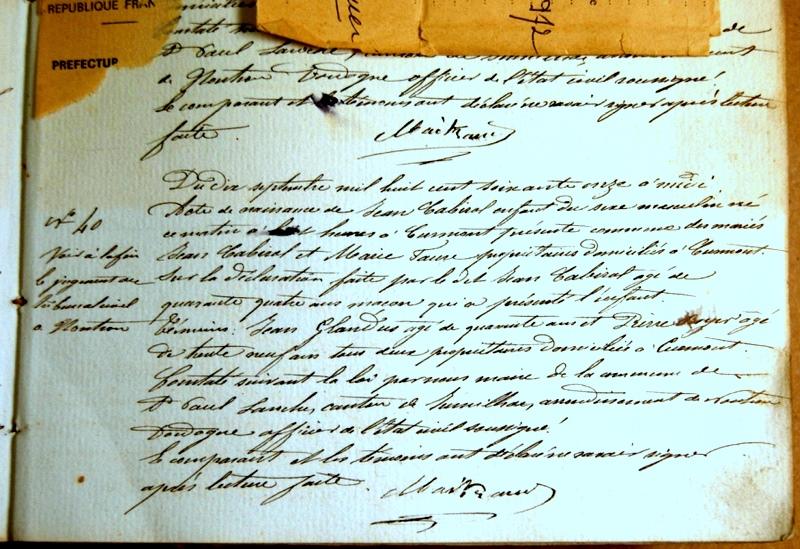 REPUBLIQUE FRAN
PREFECTUR
1912
de
St Paul Laroche,
de Nontron Dordogne officier de l'état civil soussigné
le comparant et les témoins ont déclaré ne savoir signer après lecture
faite.
Du dix septembre mil huit cent soixante onze à midi
Acte de naissance de Jean Cabirol enfant du sexe masculin né
ce matin à heures à Curmont présente commune des mariés
Jean Cabirol et Marie Faure propriétaires domiciliés à Curmont.
Sur la déclaration faite par le dit Jean Cabirol agé de
quarante quatre ans maçon qui a présenté l'enfant.
Témoins: Jean Glandus agé de quarante ans et Pierre agé
de trente neuf ans tous deux propriétaires domiciliés à Curmont.
Constaté suivant la loi par nous maire de la commune de
St Paul Laroche, canton de Jumilhac, arrondissement de Nontron
Dordogne officier de l'état civil soussigné
le comparant et les témoins ont déclaré ne savoir signer
après lecture faite.
N° 40
Voir à la fin
le jugement du
tribunal civil
à Nontron